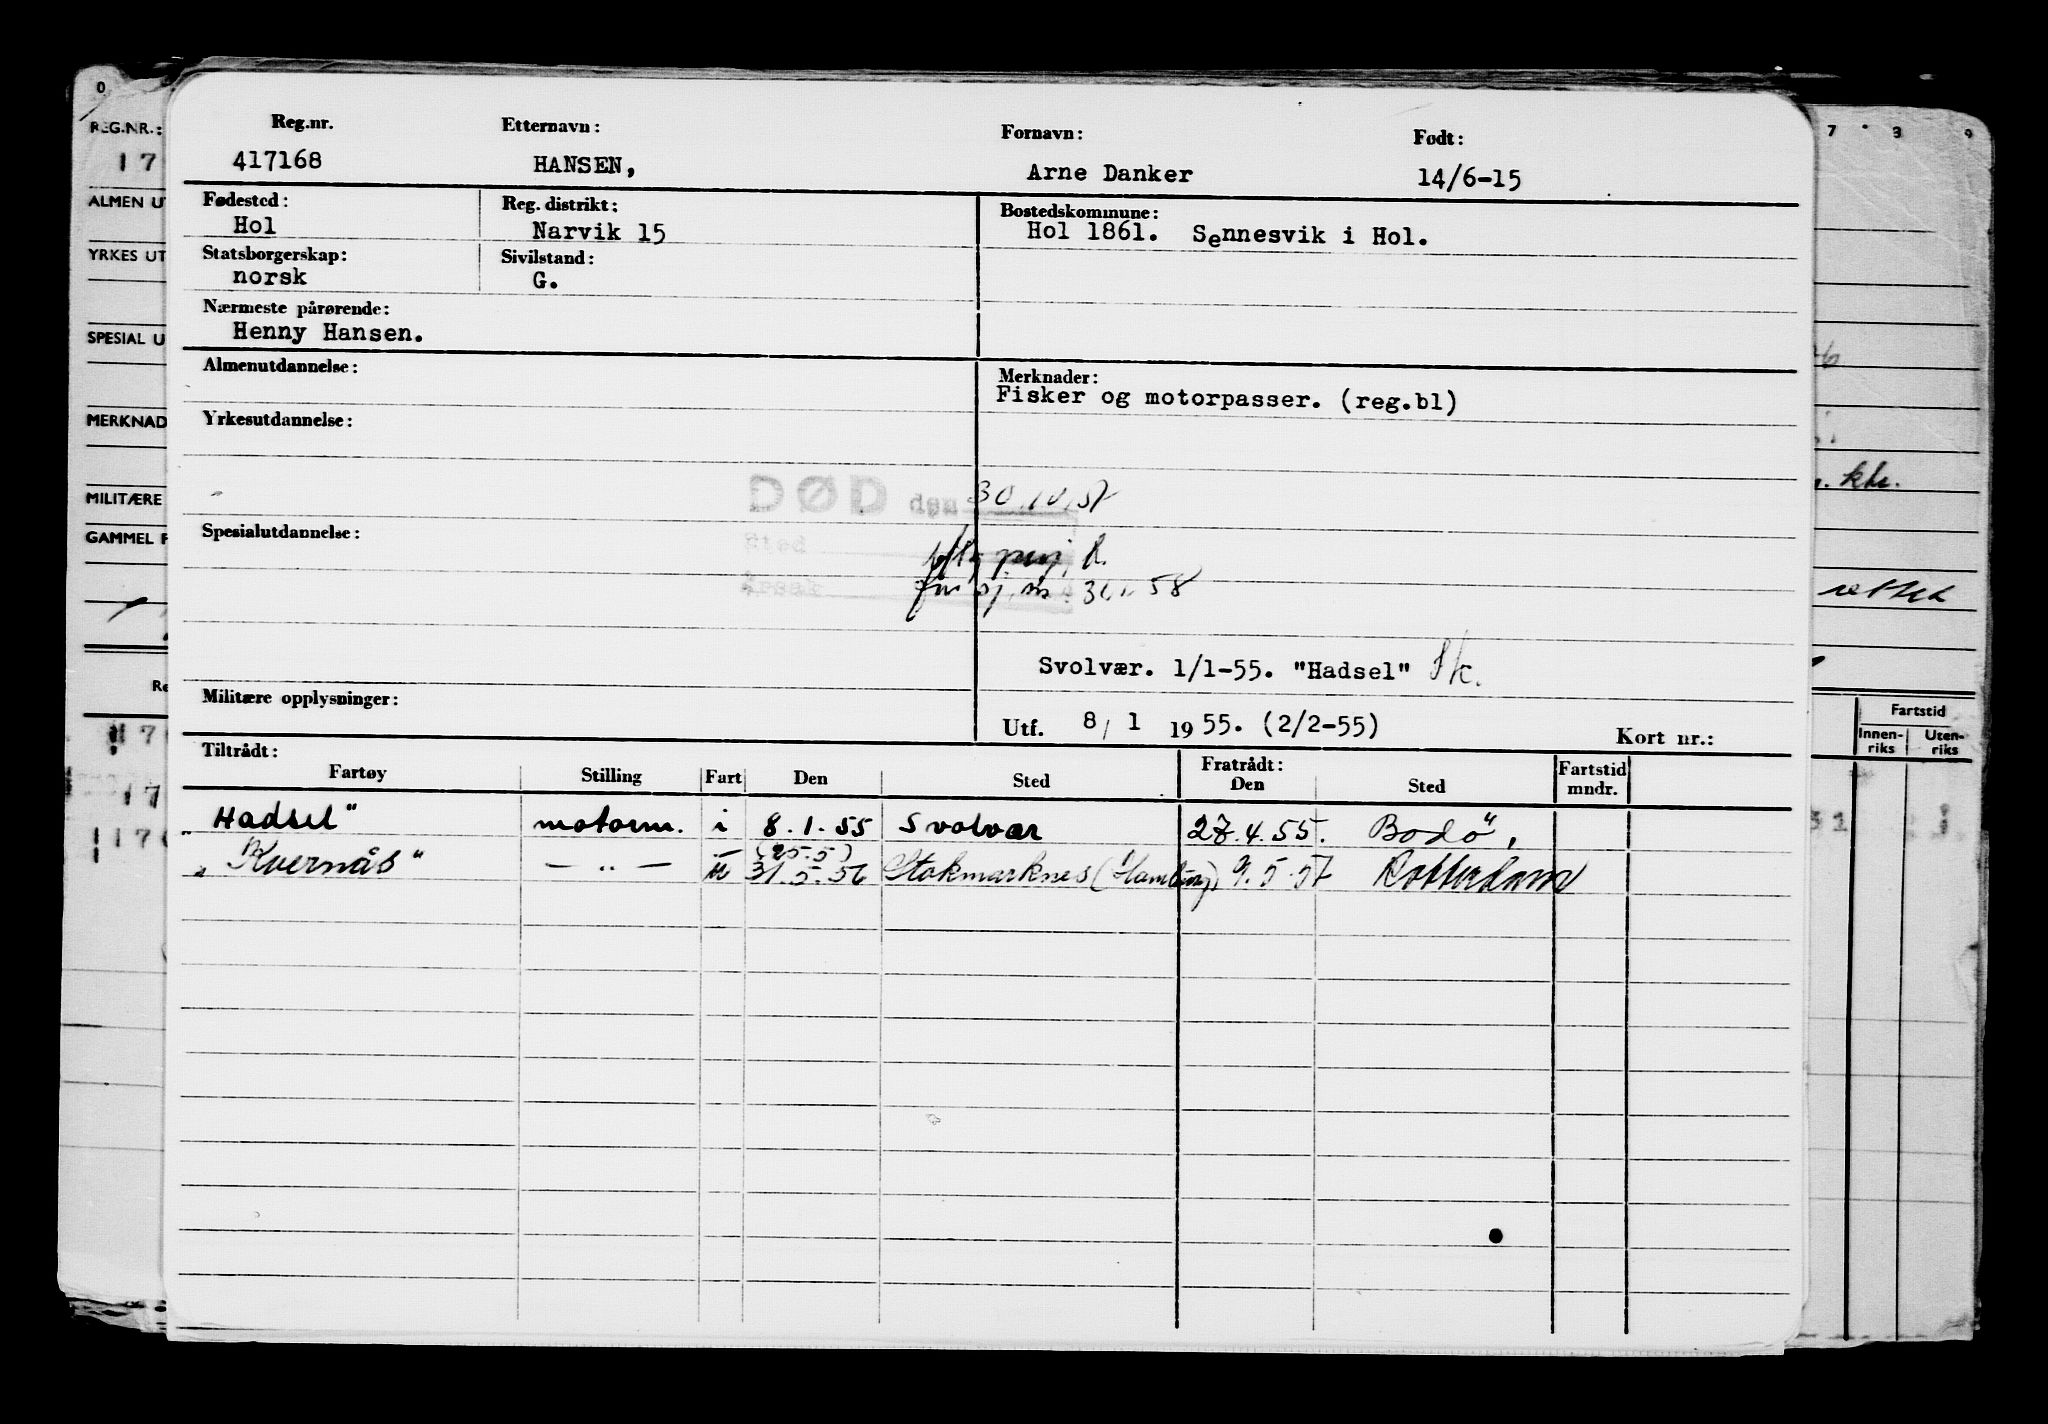 Reg.nr. Etternavn: Fornavn: Født:
417168 HANSEN, Arne Danker 14/6-15
Fødested: Reg. distrikt: Bostedskommune:
Hol Narvik 15 Hol 1861. Sennesvik i Hol.
Statsborgerskap: Sivilstand:
norsk G.
Nærmeste pårørende:
Henny Hansen.
Almenutdannelse: Merknader:
Fisker og motorpasser. (reg.bl)
Yrkesutdannelse:
DØD den 30.10.57
Sted
Spesialutdannelse:
58
Svolvær. 1/1-55. "Hadsel"
Militære opplysninger:
Utf. 8/1 1955. (2/2-55) Kort nr.:
Tiltrådt: Fratrådt: Fartstid
Fartøy Stilling Fart Den Sted Den Sted mndr.
"Hadsel" motorm. i 8.1.55 Svolvær 27.4.55. Bodö,
(25.5)
"Kvernås" — " — u 31.5.56 Stokmarknes (Hamburg) 9.5.57 Rotterdam
0
REG.NR.:
17
ALMEN UT
YRKES UT
SPESIAL U
MERKNAD
MILITÆRE
GAMMEL F
Re
17
17
117
7 3 9
kh.
rettet
Fartstid
Innen- Uten-
riks riks
31